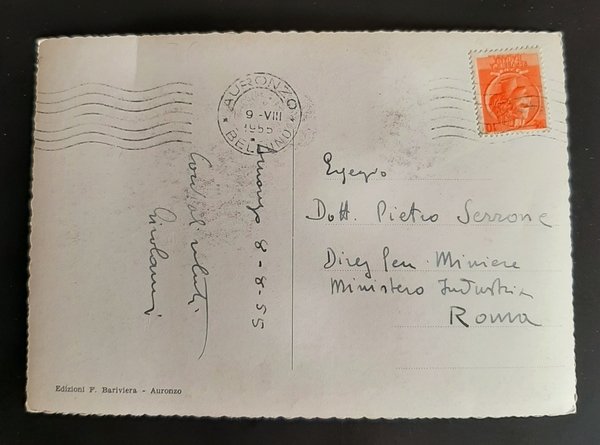 AURONZO
9-VIII
1955
BELLUNO
Auronzo 8-8-55
Cordiali saluti
Egregio
Dott. Pietro Serrone
Direz Gen. Miniere
Ministero Industria
Roma
Edizioni F. Bariviera - Auronzo